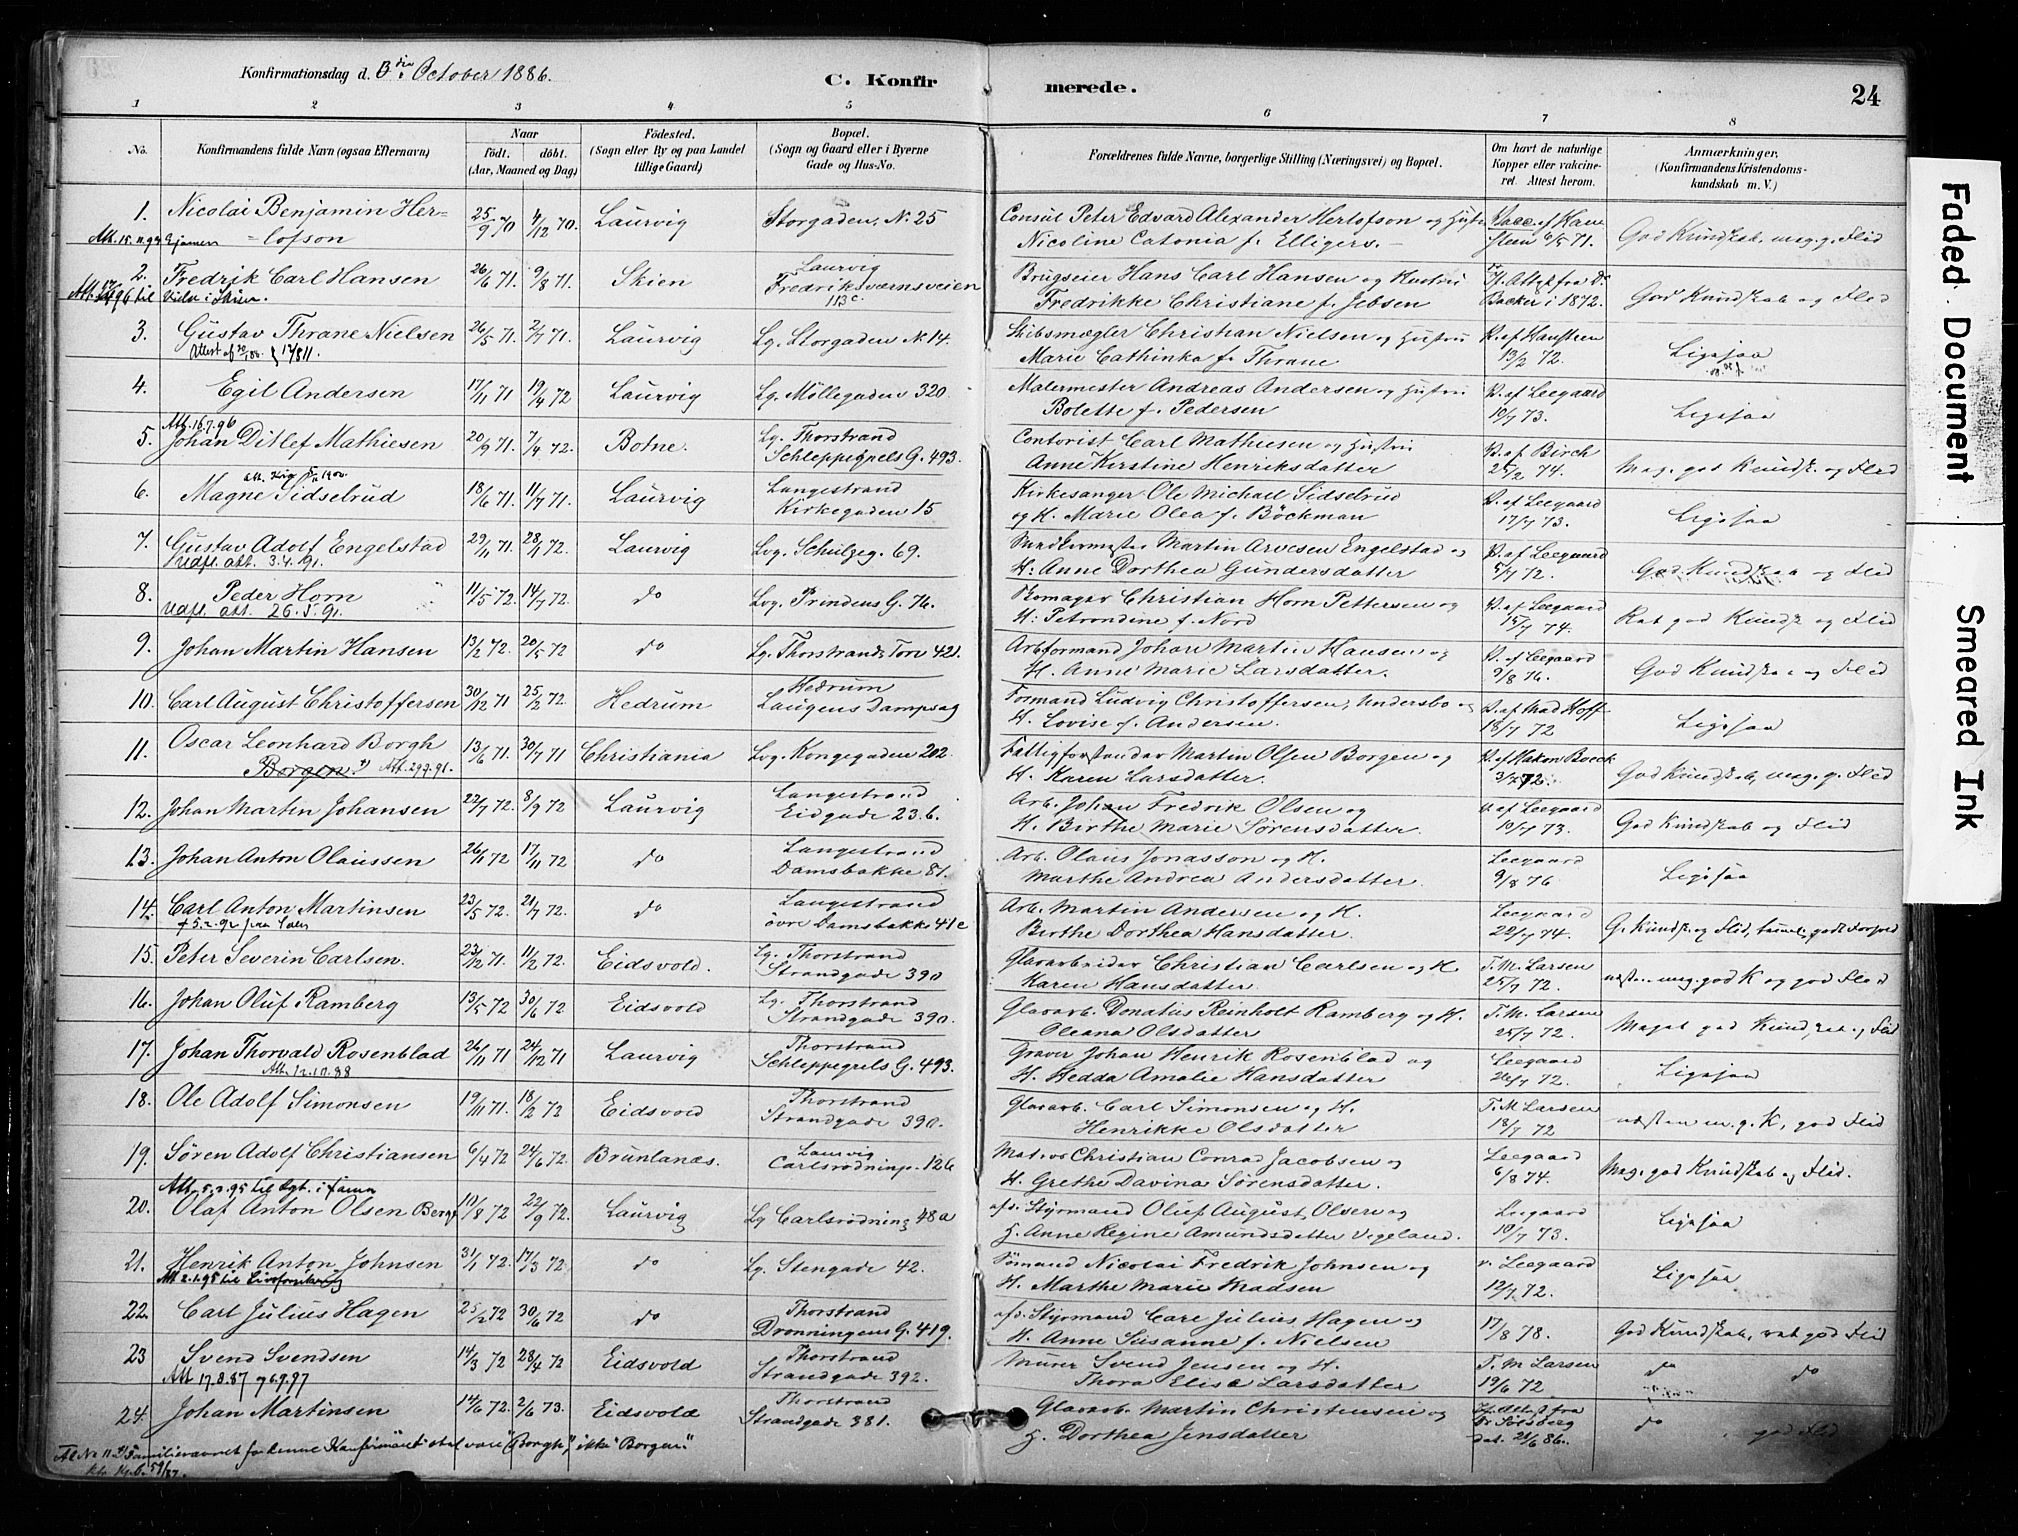 Konfirmationsdag d. 3die October 1886.
C. Konfirmerede.
24
1 2 3 4 5 6 7 8
No.
Konfirmandens fulde Navn (ogsaa Efternavn)
Naar
født. døbt.
(Aar, Maaned og Dag)
Fødested.
(Sogn eller By og paa Landet tillige Gaard)
Bopæl.
(Sogn og Gaard eller i Byerne Gade og Hus-No.
Forældrenes fulde Navne, borgerlige Stilling (Næringsvei) og Bopæl.
Om havt de naturlige Kopper eller vakcineret. Attest herom.
Anmærkninger.
(Konfirmandens Kristendomskundskab m. V.)
1. Nicolai Benjamin Herlofson 25/9 70 4/12 70. Laurvig Storgaden N. 25 Consul Peter Edvard Alexander Herlofson og Hustru Nicoline Catonia f. Elligers. 6/5 71. God Kundskab, meg. g. Flid
2. Fredrik Carl Hansen 26/6 71. 9/8 71. Skien Laurvig Fredriksværnsveien 113c. Brugseier Hans Carl Hansen og Hustru Fredrikke Christiane f. Jebsen Backer i 1872. God Kundskab og Flid
3. Gustav Thrane Nielsen 26/5 71. 2/7 71. Laurvig Lg. Storgaden N. 14. Skibsmægler Christian Nielsen og Hustru Marie Cathinka f. Thrane 13/2 72. Ligesaa
4. Egil Andersen 17/11 71 19/4 72 Laurvig Lg. Möllegaden 320. Malermester Andreas Andersen og Hustru Bolette f. Pedersen V. af Leegaard 10/7 73. Ligesaa
Att. 16.7.96
5. Johan Ditlef Mathiesen 20/9 71. 7/4 72. Botne. Lg. Thorstrand Schleppegrels G. 493. Contorist Carl Mathiesen og Hustru Anne Kirstine Henriksdatter V. af Birch 25/2 74. Meg. god Kundsk. og Flid
6. Magne Sidselrud 18/6 71. 11/7 71. Laurvig Langestrand Kirkegaden 15 Kirkesanger Ole Michael Sidselrud og H. Marie Olea f. Böckman V. af Leegaard 17/7 73. Ligesaa
7. Gustav Adolf Engelstad 29/11 71. 28/1 72. Laurvig Lvg. Schulzeg. 69. Martin Arvesen Engelstad og H: Anne Dorthea Gundersdatter V. af Leegaard 5/7 72. God Kundskab og Flid
Udfl. att. 3.4.91.
8. Peder Horn 11/5 72. 14/7 72. do Lvg. Prindens G. 76. Skomager Christian Horn Pettersen og H: Petrondine f. Nord V. af Leegaard 15/7 74. God Kundsk og Flid
Udfl. att. 26.5.91.
9. Johan Martin Hansen 13/2 72. 20/5 72 do Lg. Thorstrands Torv 421. Arb.formand Johan Martin Hansen og H. Anne Marie Larsdatter. V. af Leegaard 9/8 76. God Kundskab og Flid
10. Carl August Christoffersen 30/12 71 25/2 72. Hedrum Hedrum Laugens Dampsag Formand Ludvig Christoffersen, Undersbo og H. Lovise f. Andersen. 18/7 72 Ligesaa
11. Oscar Leonhard Borgh Borgen. Att. 29.7.91. 13/6 71. 30/7 71 Christiania Lvg. Kongegaden 202. Fattigforstander Martin Olsen Borgen og H. Karen Larsdatter. V. af Hakon Boeck God Kundskab, meg. g. Flid
12. Johan Martin Johansen 22/7 72. 8/9 72 Laurvig Langestrand Eidgade 23.b. Arb. Johan Fredrik Olsen og H. Birthe Marie Sørensdatter. v. af Leegaard 10/7 73. God Kundskab og Flid
13. Johan Anton Olaussen 26/1 72 17/11 72 do Langestrand Damsbakke 81. Arb. Olaus Jonasson og H. Marthe Andrea Andersdatter. Leegaard 9/8 76 Ligesaa
14. Carl Anton Martinsen 23/5 72. 21/7 72. do Langestrand övre Damsbakke 41c Arb. Martin Andersen og H. Birthe Dorthea Hansdatter. Leegaard 22/7 74. G. Kundsk. og Flid,
† 5.2.92 paa Søen
15. Peter Severin Carlsen. 23/12 71. 11/2 72. Eidsvold. Lg. Thorstrand Strandgade 390 Glasarbeider Christian Carlsen og H. Karen Hansdatter. T. M. Larsen 25/7 72. næsten meg. god K og god Flid
16. Johan Oluf Ramberg 13/5 72 30/6 72 Eidsvold Lg. Thorstrand Strandgade 390. Glasarb. Donatus Reinholt Ramberg og H. Oleana Olsdatter T. M. Larsen 25/7 72. Meget god Kundskab og Flid
17. Johan Thorvald Rosenblad 26/11 71 24/12 71 Laurvig Thorstrand Schleppegrels G. 493. Graver Johan Henrik Rosenblad og H. Hedda Amalie Hansdatter Leegaard 26/7 72. Ligesaa
Att. 12.10.88
18. Ole Adolf Simonsen 19/11 71. 18/2 72 Eidsvold Thorstrand Strandgade 390. Glasarb. Carl Simonsen og H. Henrikke Olsdatter T. M Larsen 18/7 72 næsten m. g. K, god Flid
19. Søren Adolf Christiansen 6/4 72 24/6 72. Brunlanæs. Laurvig Carlsrödning. 126 Matros Christian Conrad Jacobsen og H. Grethe Davina Sørensdatter. Leegaard 6/8 74. Meg. god Kundskab og Flid.
20. Olaf Anton Olsen Berg 10/8 72 22/9 72. Laurvig Lg Carlsrödning 48a afd. Styrmand Oluf August Olsen og H. Anne Regine Amundsdatter Vegeland. Leegaard 10/7 73. Ligesaa
21. Henrik Anton Johnsen 31/1 72. 17/3 72. do Lg. Stengade 42. Sømand Nicolai Fredrik Johnsen og H. Marthe Marie Knudsen v. Leegaard 12/7 72. Ligesaa
22. Carl Julius Hagen 25/2 72 30/6 72 do Thorstrand Dronningens G. 419. afd. Styrmand Carl Julius Hagen og H. Anne Susanne f. Nielsen 17/8 78. God Kundskab, god Flid
23 Svend Svendsen 14/3 72 28/4 72 Eidsvold Thorstrand Strandgade 392. Murer Svend Jensen og H. Thora Elise Larsdatter T. M Larsen 19/6 72. do do
Att 17.8.87 og 6.9.97
24. Johan Martinsen 14/6 72. 2/6 73. Eidsvold Thorstrand Strandgade 381. Glasarb. Martin Christensen og H. Dorthea Jensdatter dat. 21/6 86. do god Flid
Familienavnet for denne Konfirmant skal være "Borgh," ikke "Borgen."
Faded Document
Smeared Ink